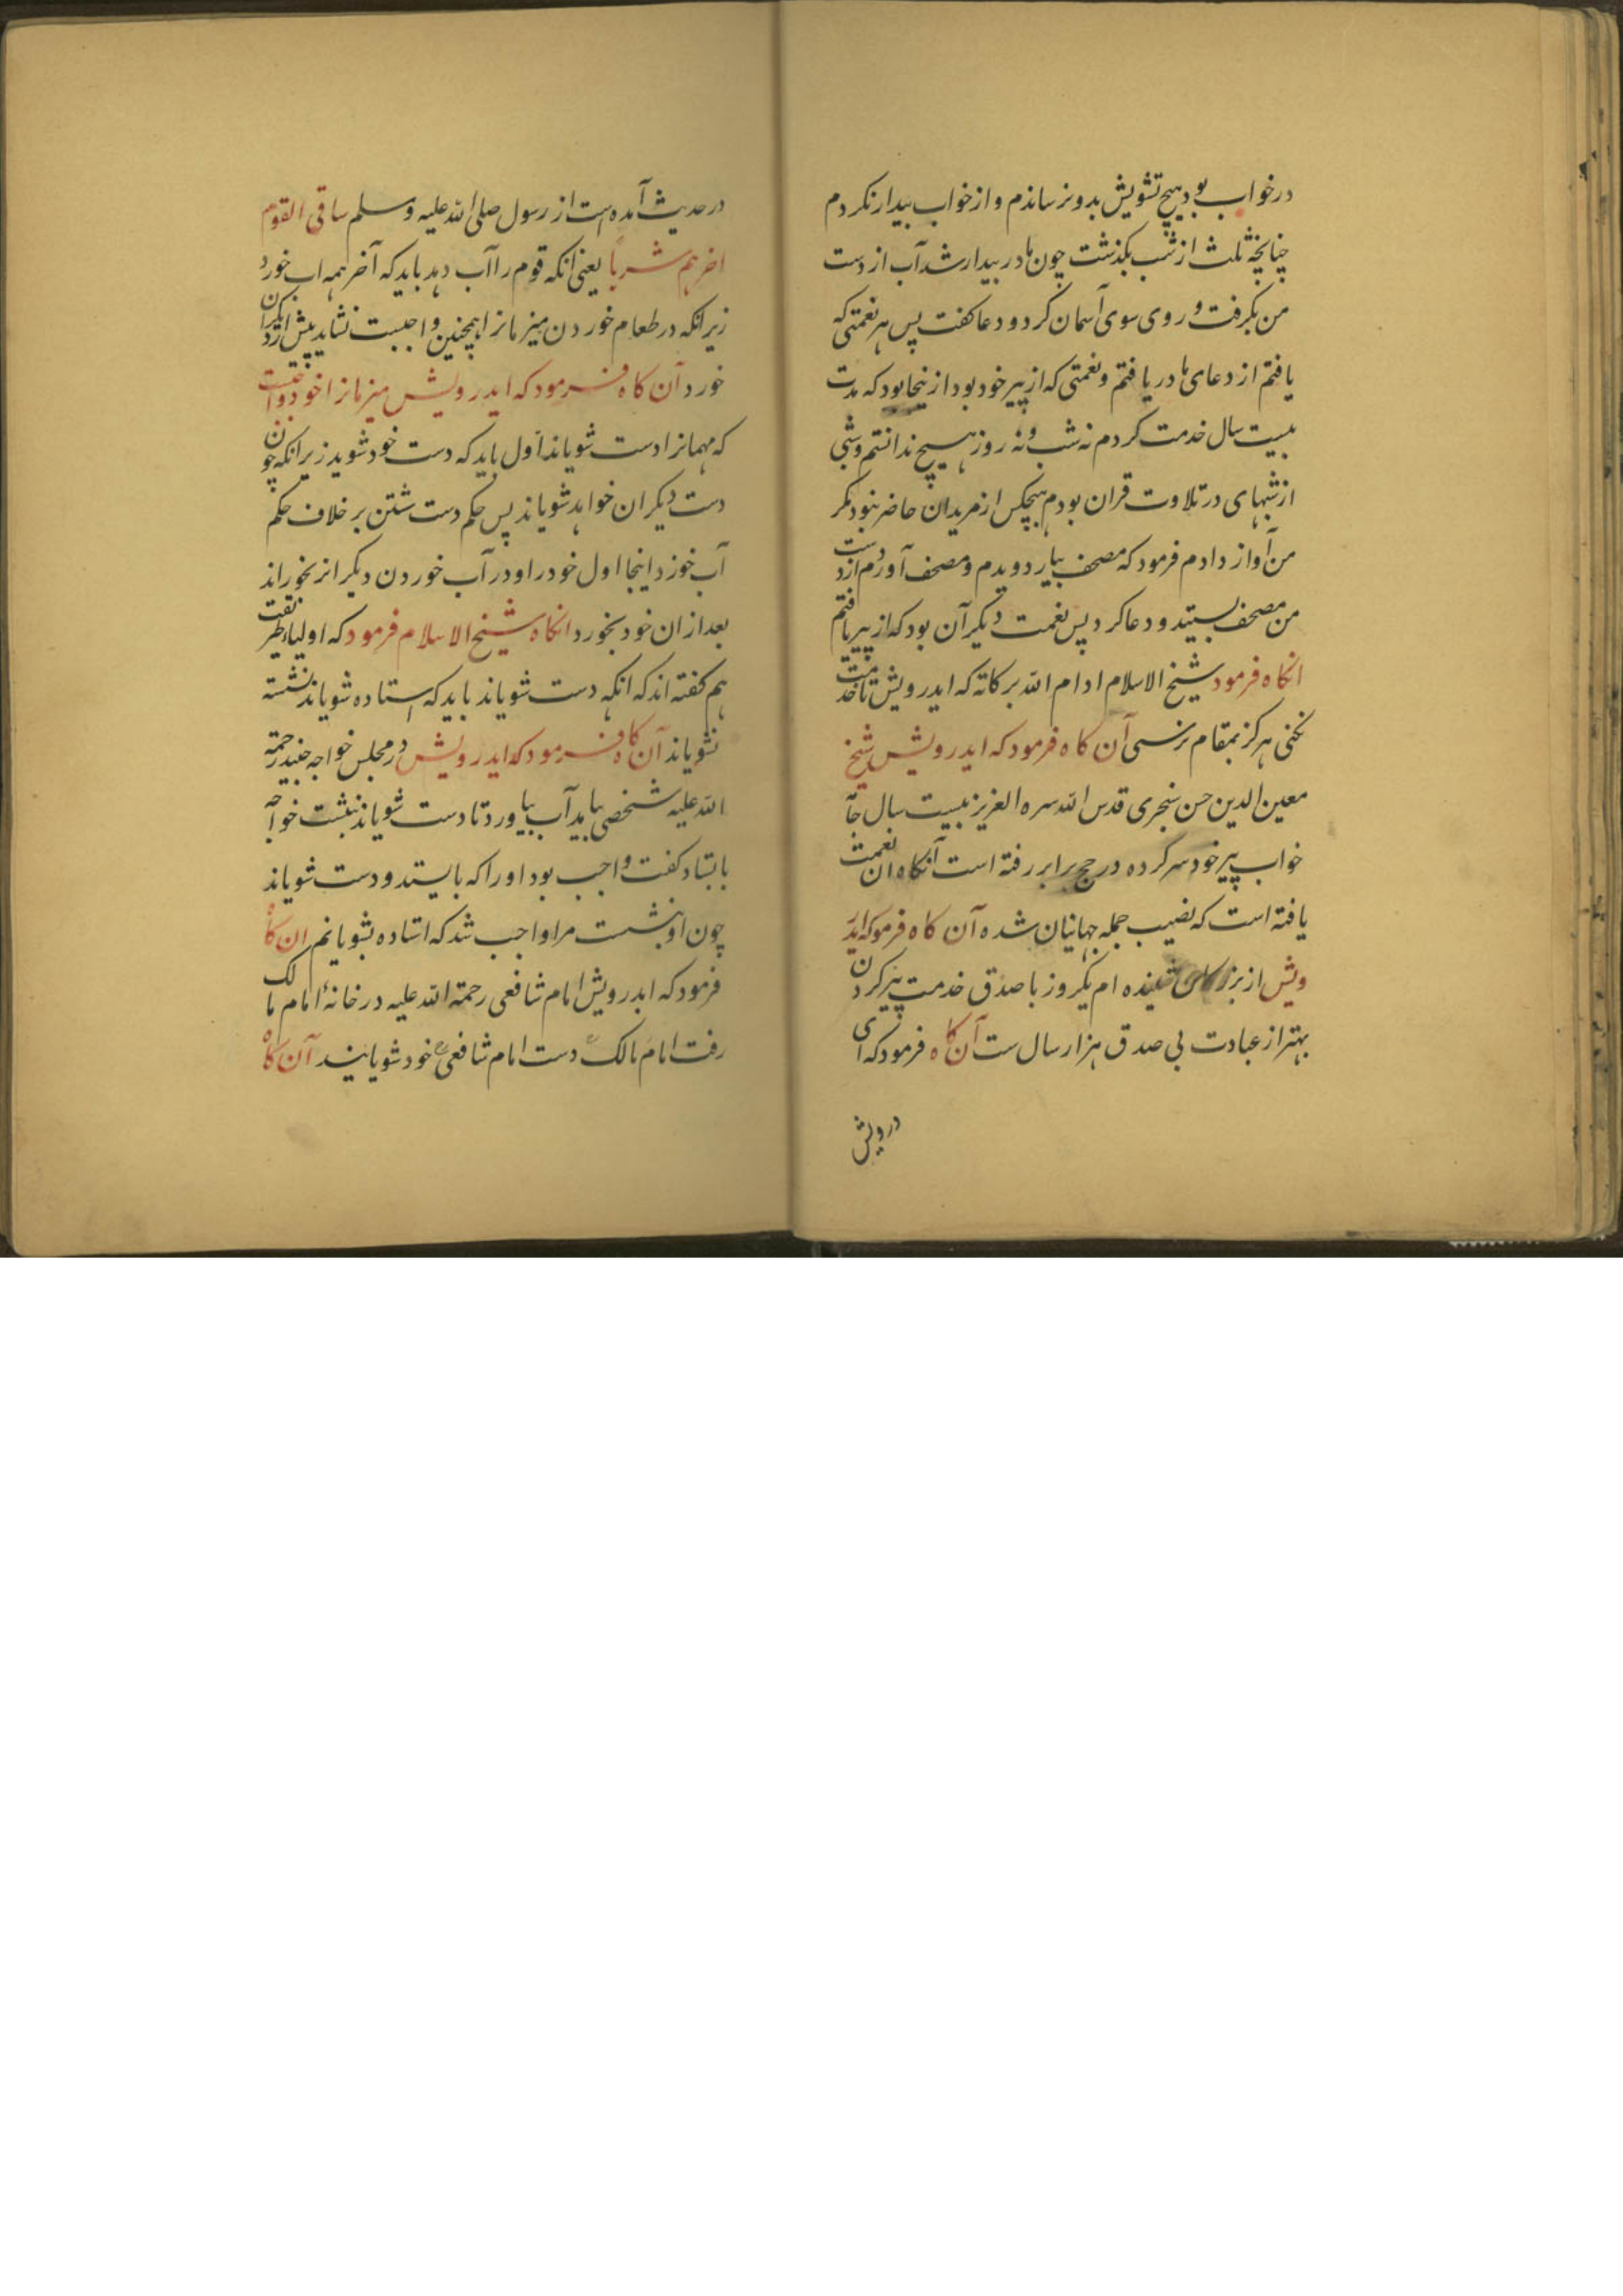 درخواب بود هیچ تشویش بدو نرساندم و از خواب بیدار نکردم
چنانچه ثلث از شب بکذشت چون مادر بیدار شد آب از دست
من بکرفت و روی سوی آسمان کرد و دعا کفت پس هر نعمتی که
یافتم از دعای مادر یافتم و نعمتی که از پیر خود بود ازینجا بود که مدت
بیست سال خدمت کردم نه شب و نه روز هیچ ندانستم و شبی
از شبهای در تلاوت قران بودم هیچکس از مریدان حاضر نبود مکر
من آواز دادم فرمود که مصحف بیار دویدم و مصحف آوردم از دست
من مصحف بستید و دعا کرد پس نعمت دیکر آن بود که از پیر یافتم
انکاه فرمود شیخ الاسلام ادام الله برکاته که ایدرویش تا خدمت
نکنی هرکز بمقام نرسی آن کاه فرمود که ایدرویش شیخ
معین الدین حسن سنجری قدس الله سره العزیز بیست سال جآ
خواب پیر خود سر کرده در حج برابر رفته است آنکاه ان نعمت
یافته است که نصیب جمله جهانیان شده آن کاه فرموکه ایدر
ویش از بزرکی شنیده ام یکروز با صدق خدمت پیر کردن
بهتر از عبادت بی صدق هزار سال ست آن کاه فرمود که ای
درویش
در حدیث آمده است از رسول صلی الله علیه وسلم ساقی القوم
اخرهم شربا یعنی انکه قوم را آب دهد باید که آخر همه اب خورد
زیرانکه در طعام خوردن میزمانرا همچنین واجبست نشاید پیش از دیکران
خورد آن کاه فرمود که ایدرویش میزمانرا خود واجبست
که مهمانرا دست شویاند اول باید که دست خود شوید زیرانکه چون
دست دیکران خواهد شویاند پس حکم دست شستن بر خلاف حکم
آب خورد اینجا اول خود را و در آب خوردن دیکرانرا بخوراند
بعد از ان خود بخورد انکاه شیخ الاسلام فرمود که اولیا طریقت
هم کفته اند که انکه دست شویاند باید که استاده شویاند نشسته
نشویاند آن کاه فرمود که ایدرویش در مجلس خواجه جنید رحمة
الله علیه شخصی بیامد آب بیاورد تا دست شویاند بنشست خواجه
باستاد کفت واجب بود او را که بایستد و دست شویاند
چون او بنشست مرا واجب شد که استاده بشویانم ان کاه
فرمود که ایدرویش امام شافعی رحمة الله علیه در خانۀ امام مالک
رفت امام مالک دست امام شافعی خود شویانید آن کاه